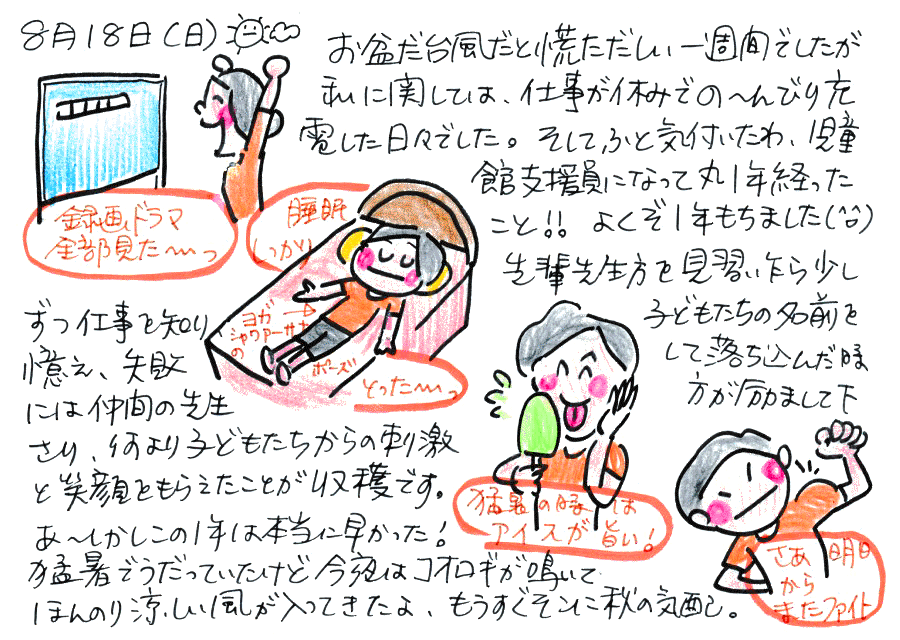 8月18日(日)
お盆だ台風だと慌ただしい一週間でしたが
私に関しては、仕事が休みでのへんびり充
電した日々でした。そして、ふと気付いたわ、児童
館支援員になって丸1年経った
こと!! よくぞ1年もちました(^◇^)
先輩先生方を見習いながら少し
ずつ仕事を知り、
子どもたちの名前を
憶え、失敗
して落ち込んだ時
には仲間の先生
方が励まして下
さり、何より子どもたちからの刺激
と笑顔をもらえたことが収穫です。
あ〜しかしこの1年は本当に早かった!
猛暑でうだっていたけど今夜はコオロギが鳴いて
ほんのり涼しい風が入ってきたよ、もうすぐそこに秋の気配も。
録画ドラマ
全部見た〜っ
睡眠
しっかり
ヨガ
シャヴァーサナ
の
ポーズ
とった〜っ
猛暑の時は
アイスが旨い!
さあ明日
から
またファイト